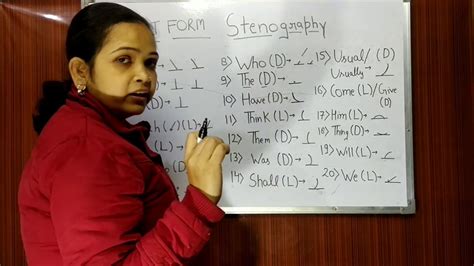 T FORM Stenography
8) Who (D)→
9) The (D)→
10) Have (D)→
11) Think (L)→
12) Them (D)→
13) Was (D)→
14) Shall (L)→
15) Usual/ (D)
Usually→
16) Come (L)/Give (D)
17) Him (L)→
18) Thing (D)→
19) Will (L)→
20) We (L)→